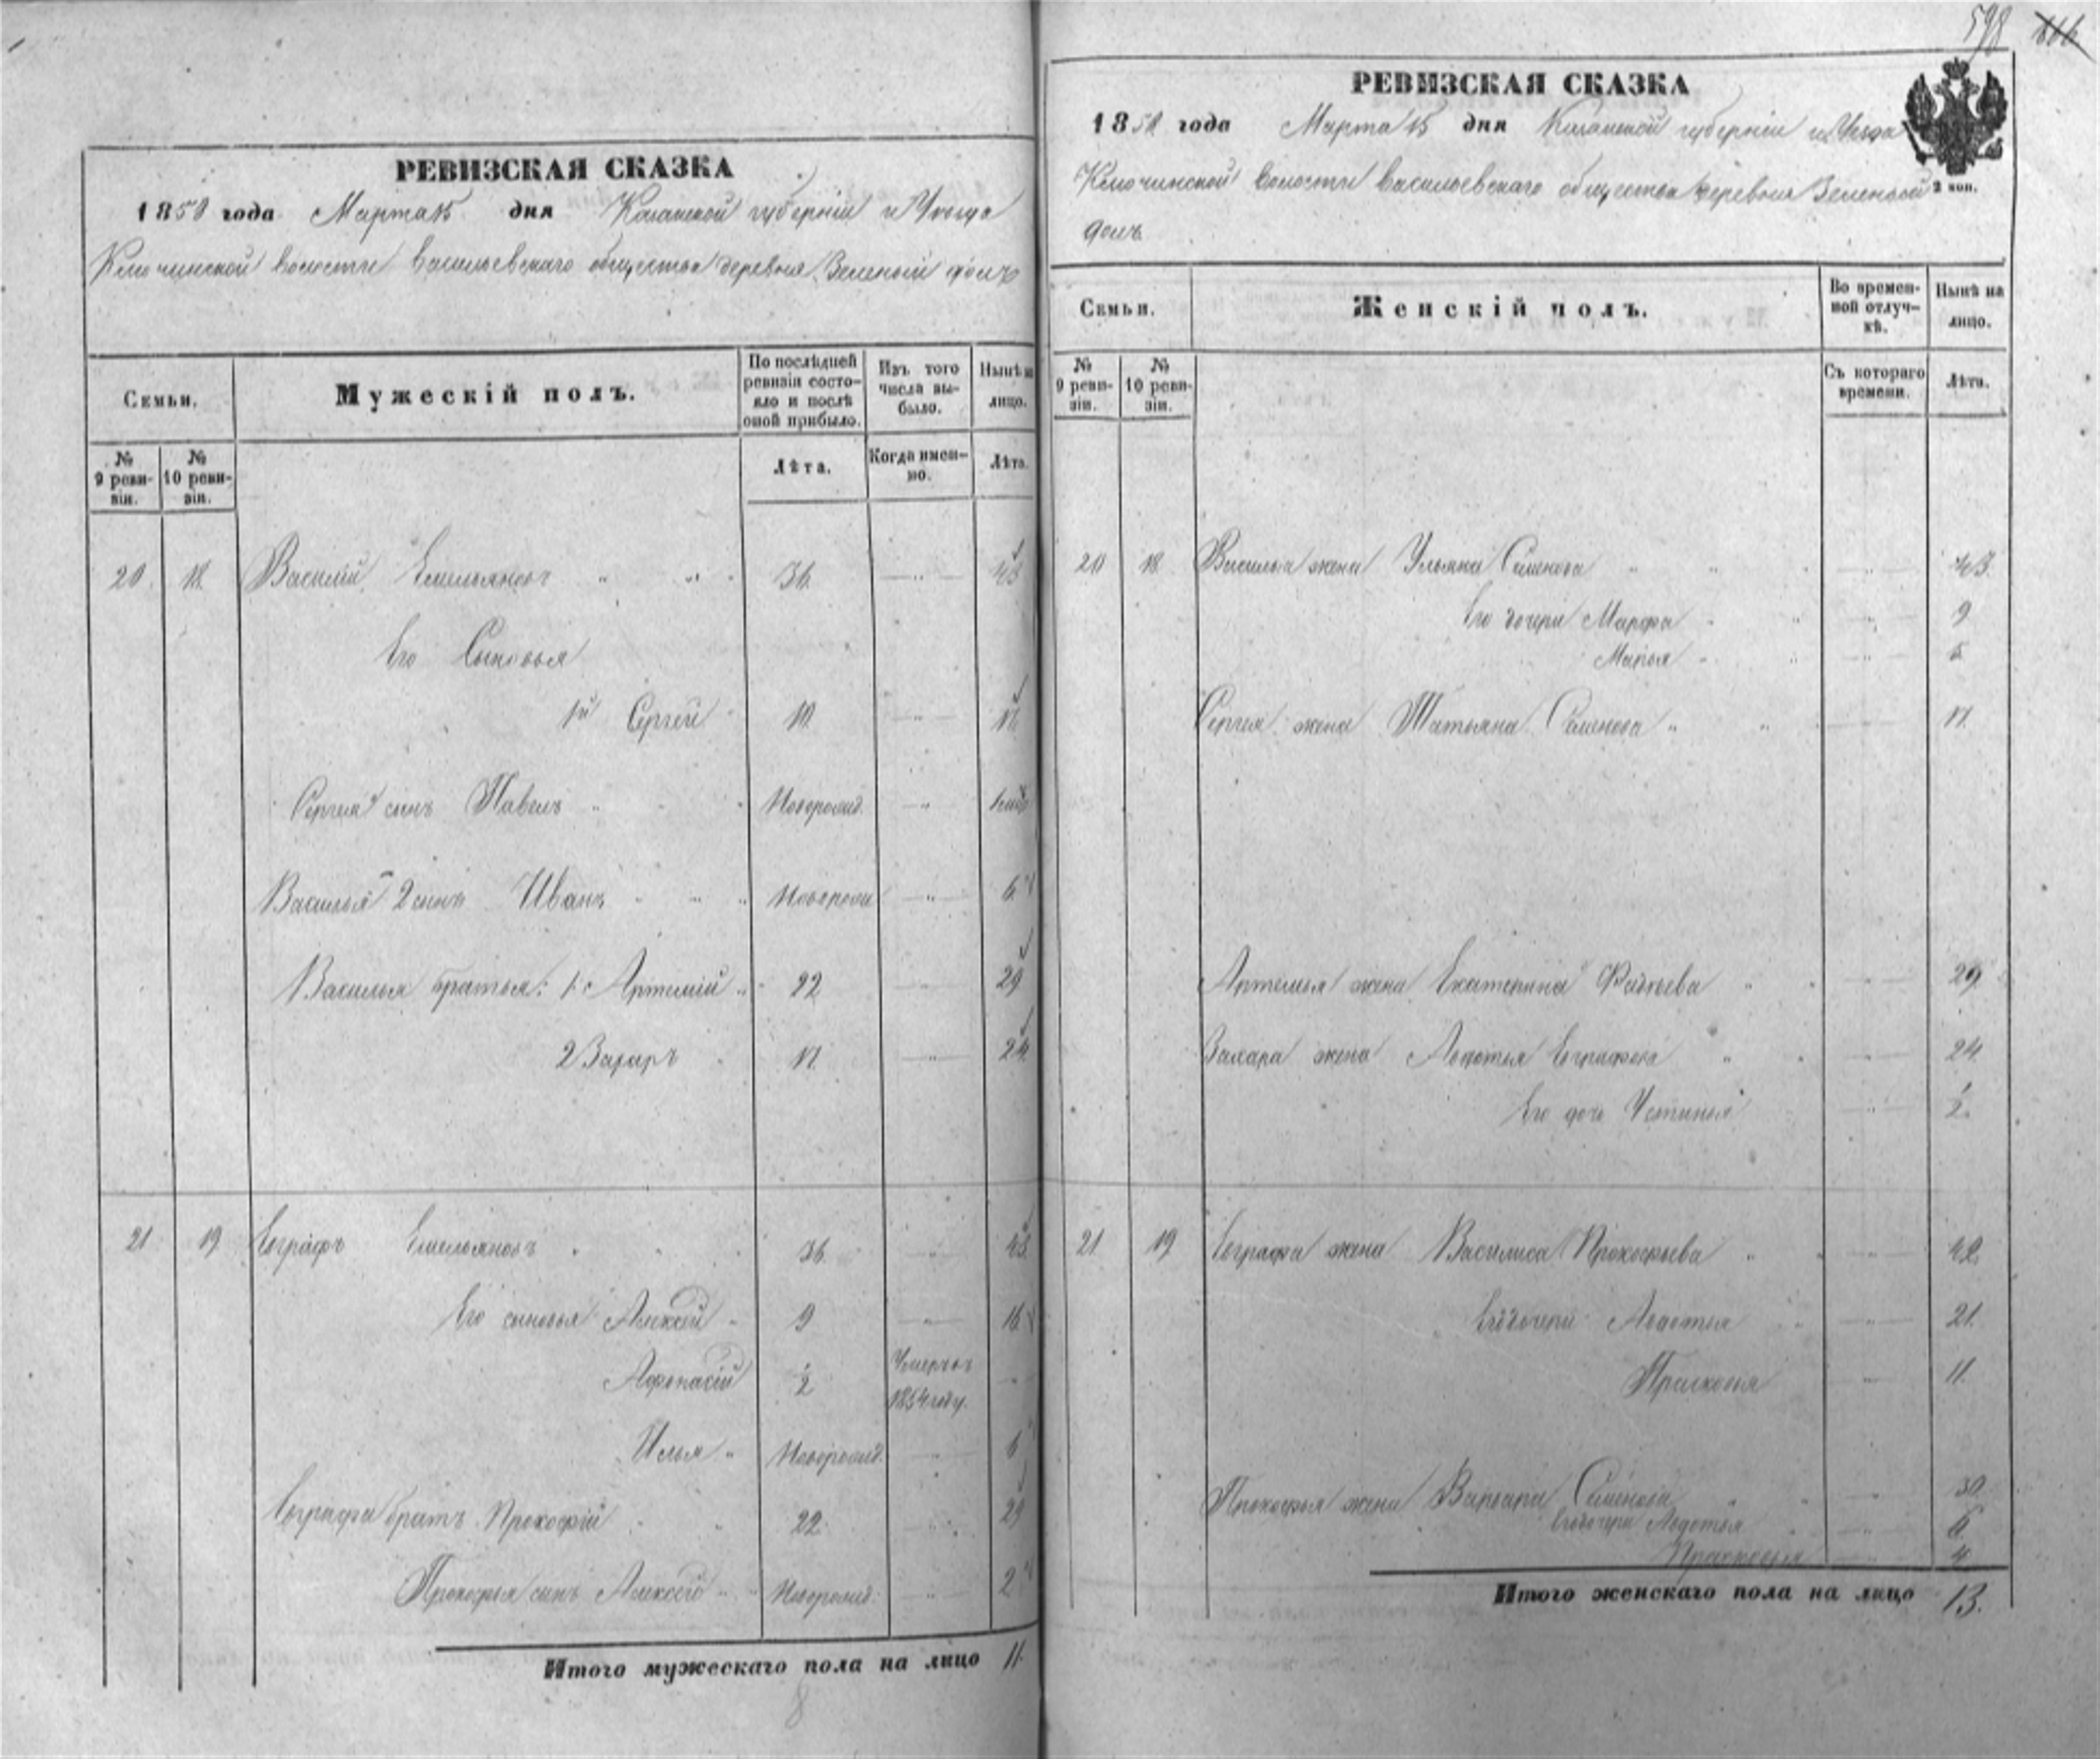 РЕВИЗСКАЯ СКАЗКА
1858 года Марта 15 дня Казанской губерніи и Уезда
Ключинской волости Васильевскаго общества деревня Зеленый Долъ
Семьи.
Мужескій полъ.
По послѣдней ревизіи состояло и послѣ оной прибыло.
Изъ того числа выбыло.
Нынѣ на лицо.
№ 9 ревизіи.
№ 10 ревизіи.
Лѣта.
Когда именно.
Лѣта.
20. 18. Василій Емельяновъ " " 36. —"— 43
Его Сыновья
1й Сергей 10. —"— 17.
Сергея сынъ Павелъ " Новорожд. "
Василья 2 сынъ Иванъ " " Новорожд —"— 6
Василья братья: 1. Артемій " 22 —"— 29
2 Захаръ 17. —"— 24
21 19 Евграфъ Емельяновъ " 36. " 43.
Его сыновья Алексей " 9 —"— 16
Афонасій 2 Умеръ въ 1854 году.
Илья " Новорожд. — 6
Евграфа братъ Прокофій 22 " 29
Прокофья сынъ Алексей " Новорожд. " 2
Итого мужескаго пола на лицо 11.
8
598
РЕВИЗСКАЯ СКАЗКА
1858 года Марта 15 дня Казанской губерніи и Уезда
Ключинской волости Васильевскаго общества деревня Зеленый
2 коп.
Долъ.
Семьи.
Женскій полъ.
Во временной отлучкѣ.
Нынѣ на лицо.
№ 9 ревизіи.
№ 10 ревизіи.
Съ котораго времени.
Лѣта.
20 18 Василья жена Ульяна Семенова " " —"— 43.
Его дочери Марфа " " —"— 9
Марья " " —"— 5
Сергея жена Татьяна Семенова " " —"— 17.
Артемья жена Екатерина Фадѣева " —"— 29.
Захара жена Авдотья Евграфова " —"— 24.
Его дочь Устинья —"— 2.
21. 19 Евграфа жена Василиса Прокофьева " —"— 42.
Его дочери Авдотья " —"— 21.
Прасковья —"— 11.
Прокофья жена Варвара Семенова " " 30.
Его дочери Авдотья " 6.
Прасковья 4
Итого женскаго пола на лицо 13.